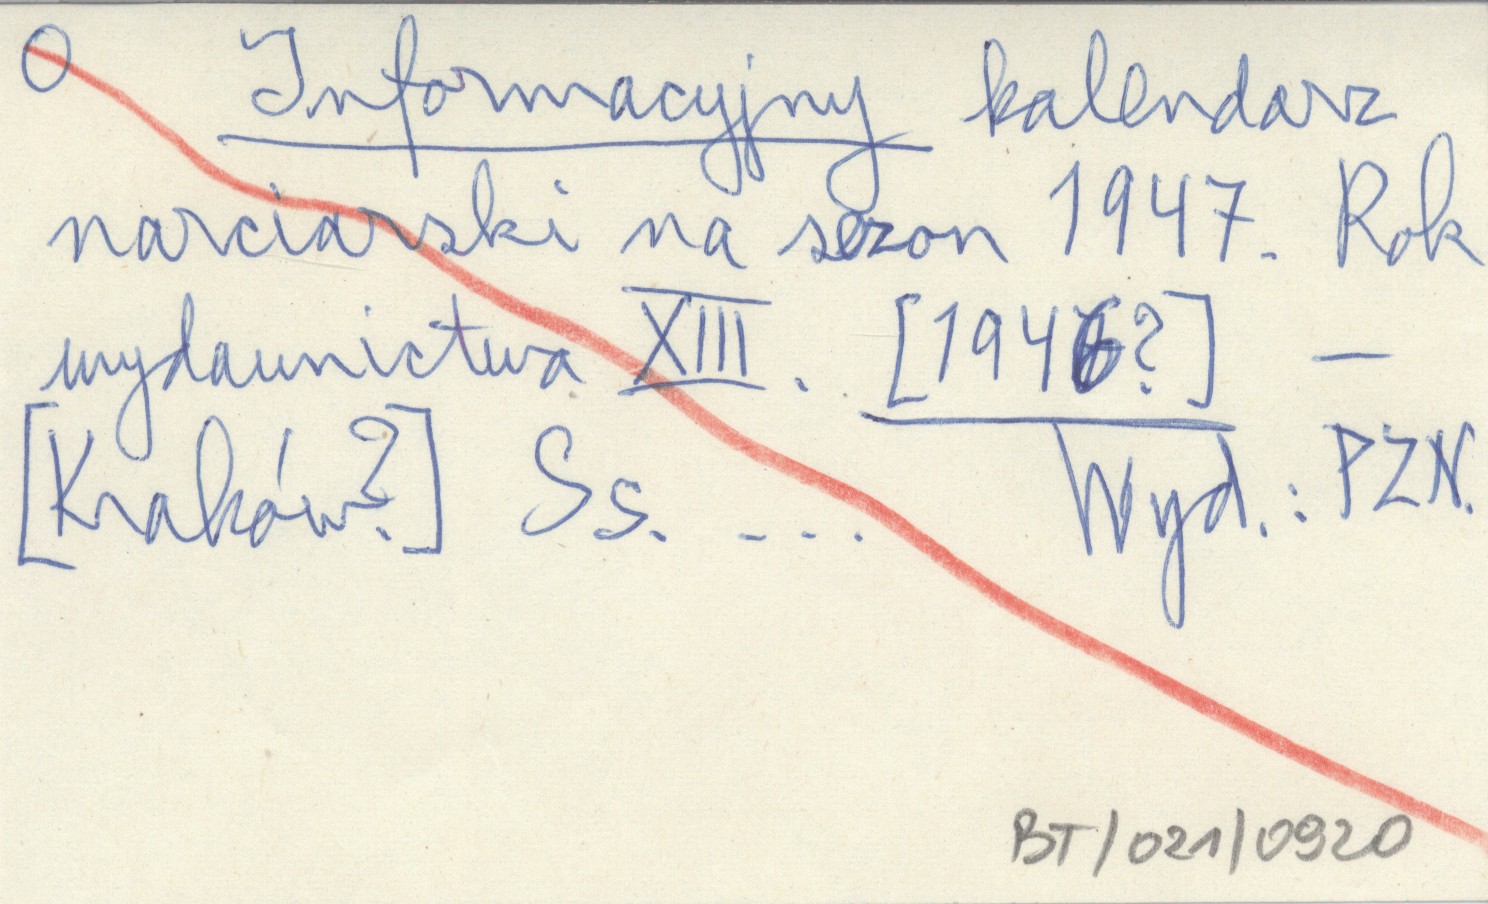 O Informacyjny kalendarz
narciarski na sezon 1947. Rok
wydawnictwa XIII. [1946?] —
[Kraków?] Ss. .... Wyd.: PZN.
BT/021/0920